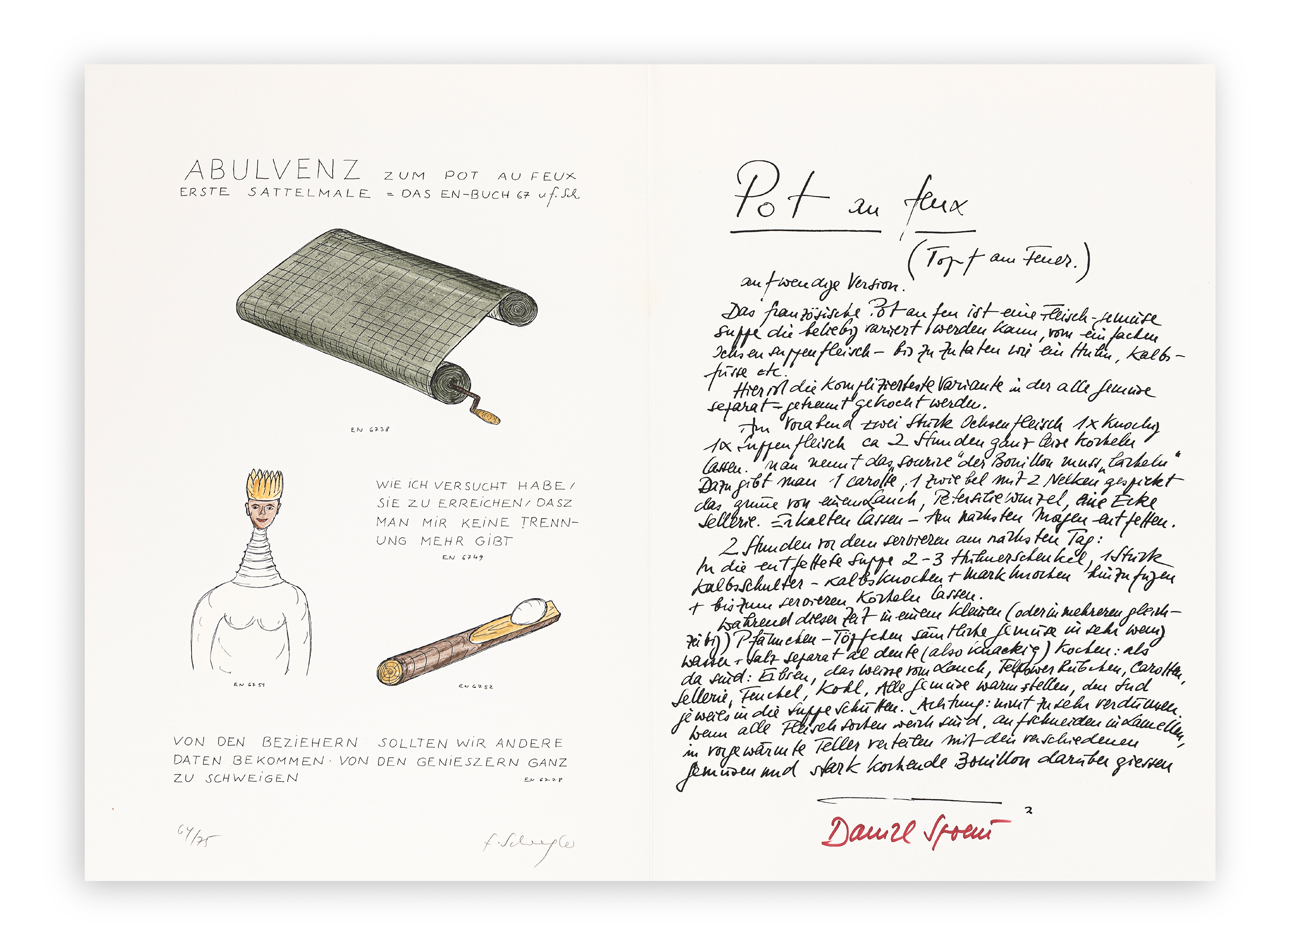 ABULVENZ ZUM POT AU FEUX
ERSTE SATTELMALE = DAS EN-BUCH 67 v f. Sch.
EN 6738
WIE ICH VERSUCHT HABE/
SIE ZU ERREICHEN/DASZ
MAN MIR KEINE TRENN-
UNG MEHR GIBT
EN 6749
EN 6751
EN 6752
VON DEN BEZIEHERN SOLLTEN WIR ANDERE
DATEN BEKOMMEN · VON DEN GENIESZERN GANZ
ZU SCHWEIGEN
64/75
Pot au feux
(Topf am Feuer.)
aufwendige Version.
Das französische Pot au feu ist eine Fleisch-gemüse
suppe die beliebig variert werden kann, vom einfachen
Ochsensuppenfleisch – bis zu Zutaten wie ein Huhn, Kalbs-
füsse etc.
Hier ist die komplizierteste Variante in der alle Gemüse
separat – getrennt gekocht werden.
Am Vorabend zwei Stück Ochsenfleisch 1x Knochig
1x Suppenfleisch ca 2 Stunden ganz leise köcheln
lassen. Man nennt das „sourire“ der Bouillon muss „lächeln“
Dazu gibt man 1 Carotte, 1 Zwiebel mit 2 Nelken gespickt
das grüne von einem Lauch, Petersilewurzel, eine Ecke
Sellerie. Erkalten lassen – Am nächsten Morgen entfetten.
2 Stunden vor dem servieren am nächsten Tag:
In die entfettete Suppe 2–3 Hühnerschenkel, 1 Stück
Kalbsschulter – Kalbsknochen + Markknochen hinzufügen
+ bis zum servieren köcheln lassen.
Während dieser Zeit in einem kleinen (oder in mehreren gleich-
zeitig) Pfännchen – Töpfchen sämtliche Gemüse in sehr wenig
Wasser + Salz separat al dente (also knackig) kochen: als
da sind: Erbsen, das weisse vom Lauch, Teltower Rübchen, Carotten,
Sellerie, Fenchel, Kohl, Alle Gemüse warmstellen, den Sud
jeweils in die Suppe schütten. Achtung: nicht zu sehr verdünnen,
wenn alle Fleischsorten weich sind, aufschneiden in Lamellen,
in vorgewärmte Teller verteilen mit den verschiedenen
Gemüsen und stark kochende Bouillon darüber giessen
2
Daniel Spoerri